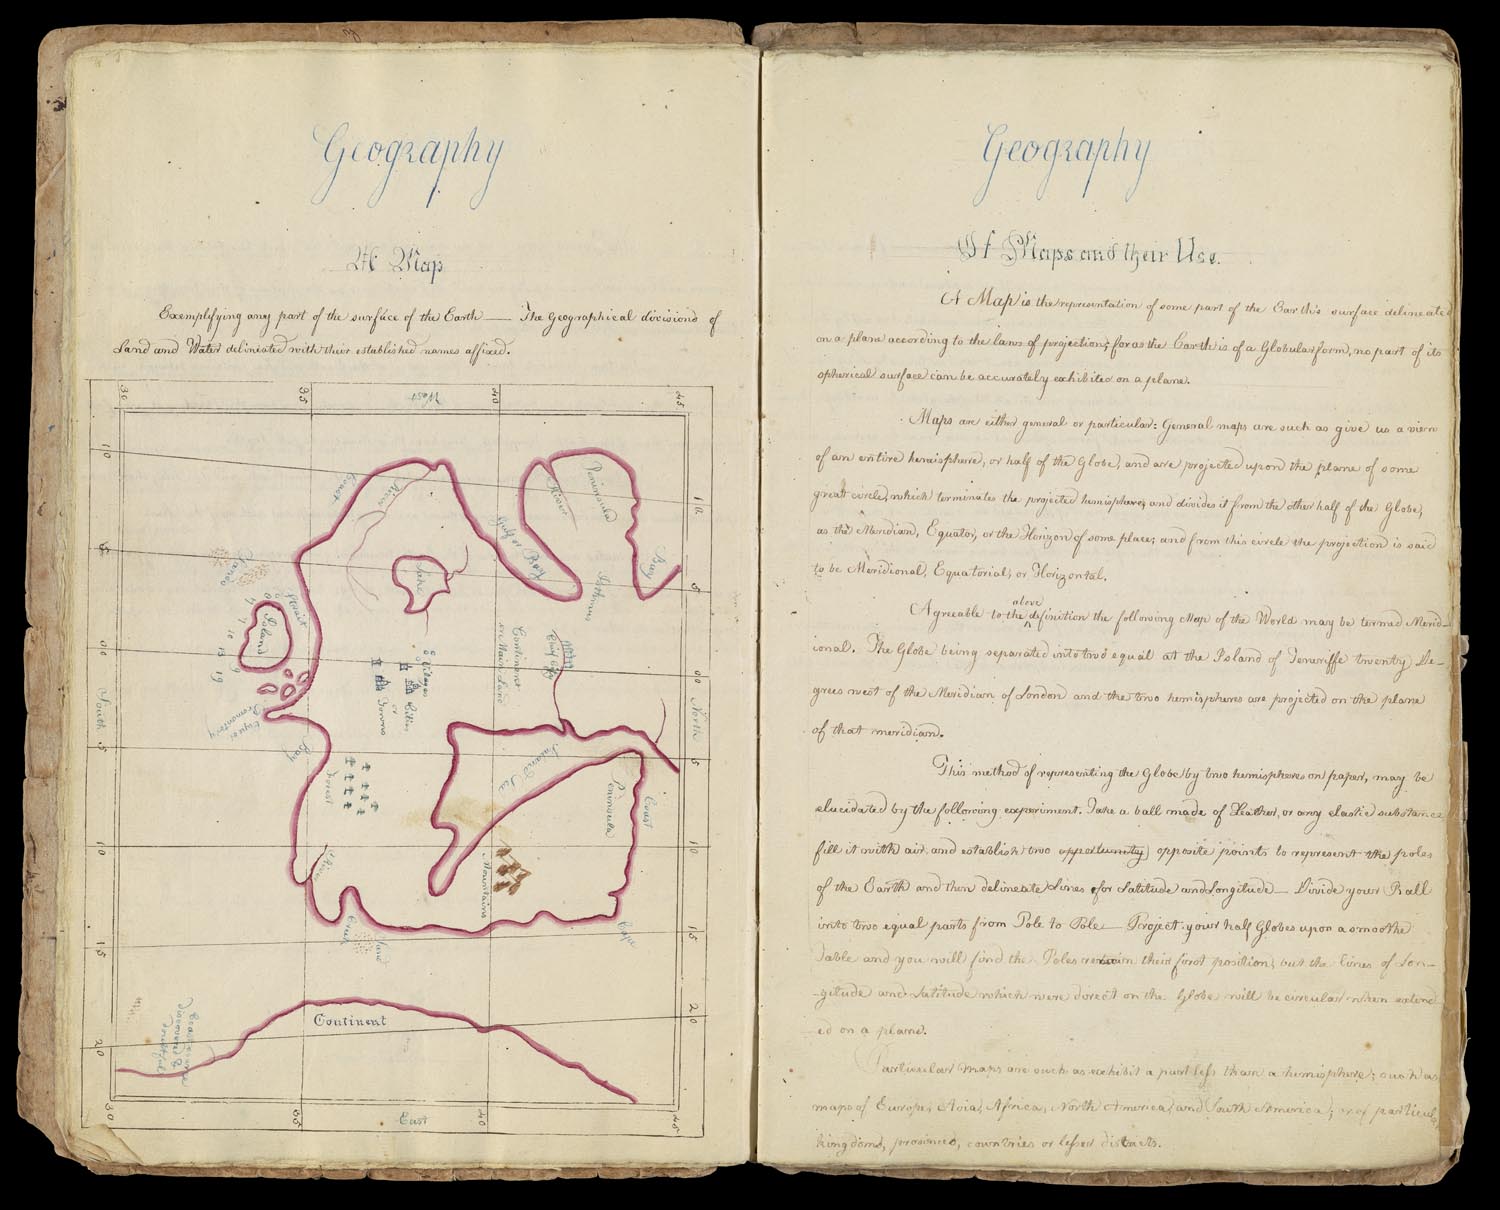 Geography
A Map
Exemplifying any part of the surface of the Earth — The Geographical divisions of
Land and Water delineated with their established names affixed.
30
35
West
40
45
10
10
Coast
River
River
Peninsula
Gulf or Bay
Bay
5
5
Sands
Lake
Isthmus
Strait
Island
7
7
10
13
9
19
Continent
or Main Land
Chief City
Villages
Cities
or
Towns
00
00
South
North
Cape or
Promontory
Bay
5
5
Forest
Inland Sea
Peninsula
Coast
10
10
River
Mountains
15
15
Creek
Sand
Cape
Continent
20
20
30
35
East
40
45
Geography
Of Maps and their Use.
A Map is the representation of some part of the Earth's surface delineated
on a plane according to the laws of projection; for as the Earth is of a Globular form, no part of its
spherical surface can be accurately exhibited on a plane.
Maps are either general or particular: General maps are such as give us a view
of an entire hemisphere, or half of the Globe, and are projected upon the plane of some
great circle, which terminates the projected hemisphere, and divides it from the other half of the Globe,
as the Meridian, Equator, or the Horizon of some place; and from this circle the projection is said
to be Meridional, Equatorial, or Horizontal.
above
Agreeable to the definition the following Map of the World may be termed Merid-
ional. The Globe being separated into two equal at the Island of Teneriffe twenty De-
grees west of the Meridian of London and the two hemispheres are projected on the plane
of that meridian.
This method of representing the Globe by two hemispheres on paper, may be
elucidated by the following experiment. Take a ball made of Leather, or any elastic substance
fill it with air and establish two opportunity opposite points to represent the poles
of the Earth and then delineate Lines for Latitude and Longitude — Divide your Ball
into two equal parts from Pole to Pole — Project your half Globes upon a smoothe
Table and you will find the Poles retain their first position, but the Lines of Lon-
-gitude and Latitude which were direct on the Globe will be circular when extend-
-ed on a plane.
Particular maps are such as exhibit a part less than a hemisphere; such as
maps of Europe, Asia, Africa, North America, and South America; or of particular
kingdoms, provinces, countries or lesser districts.